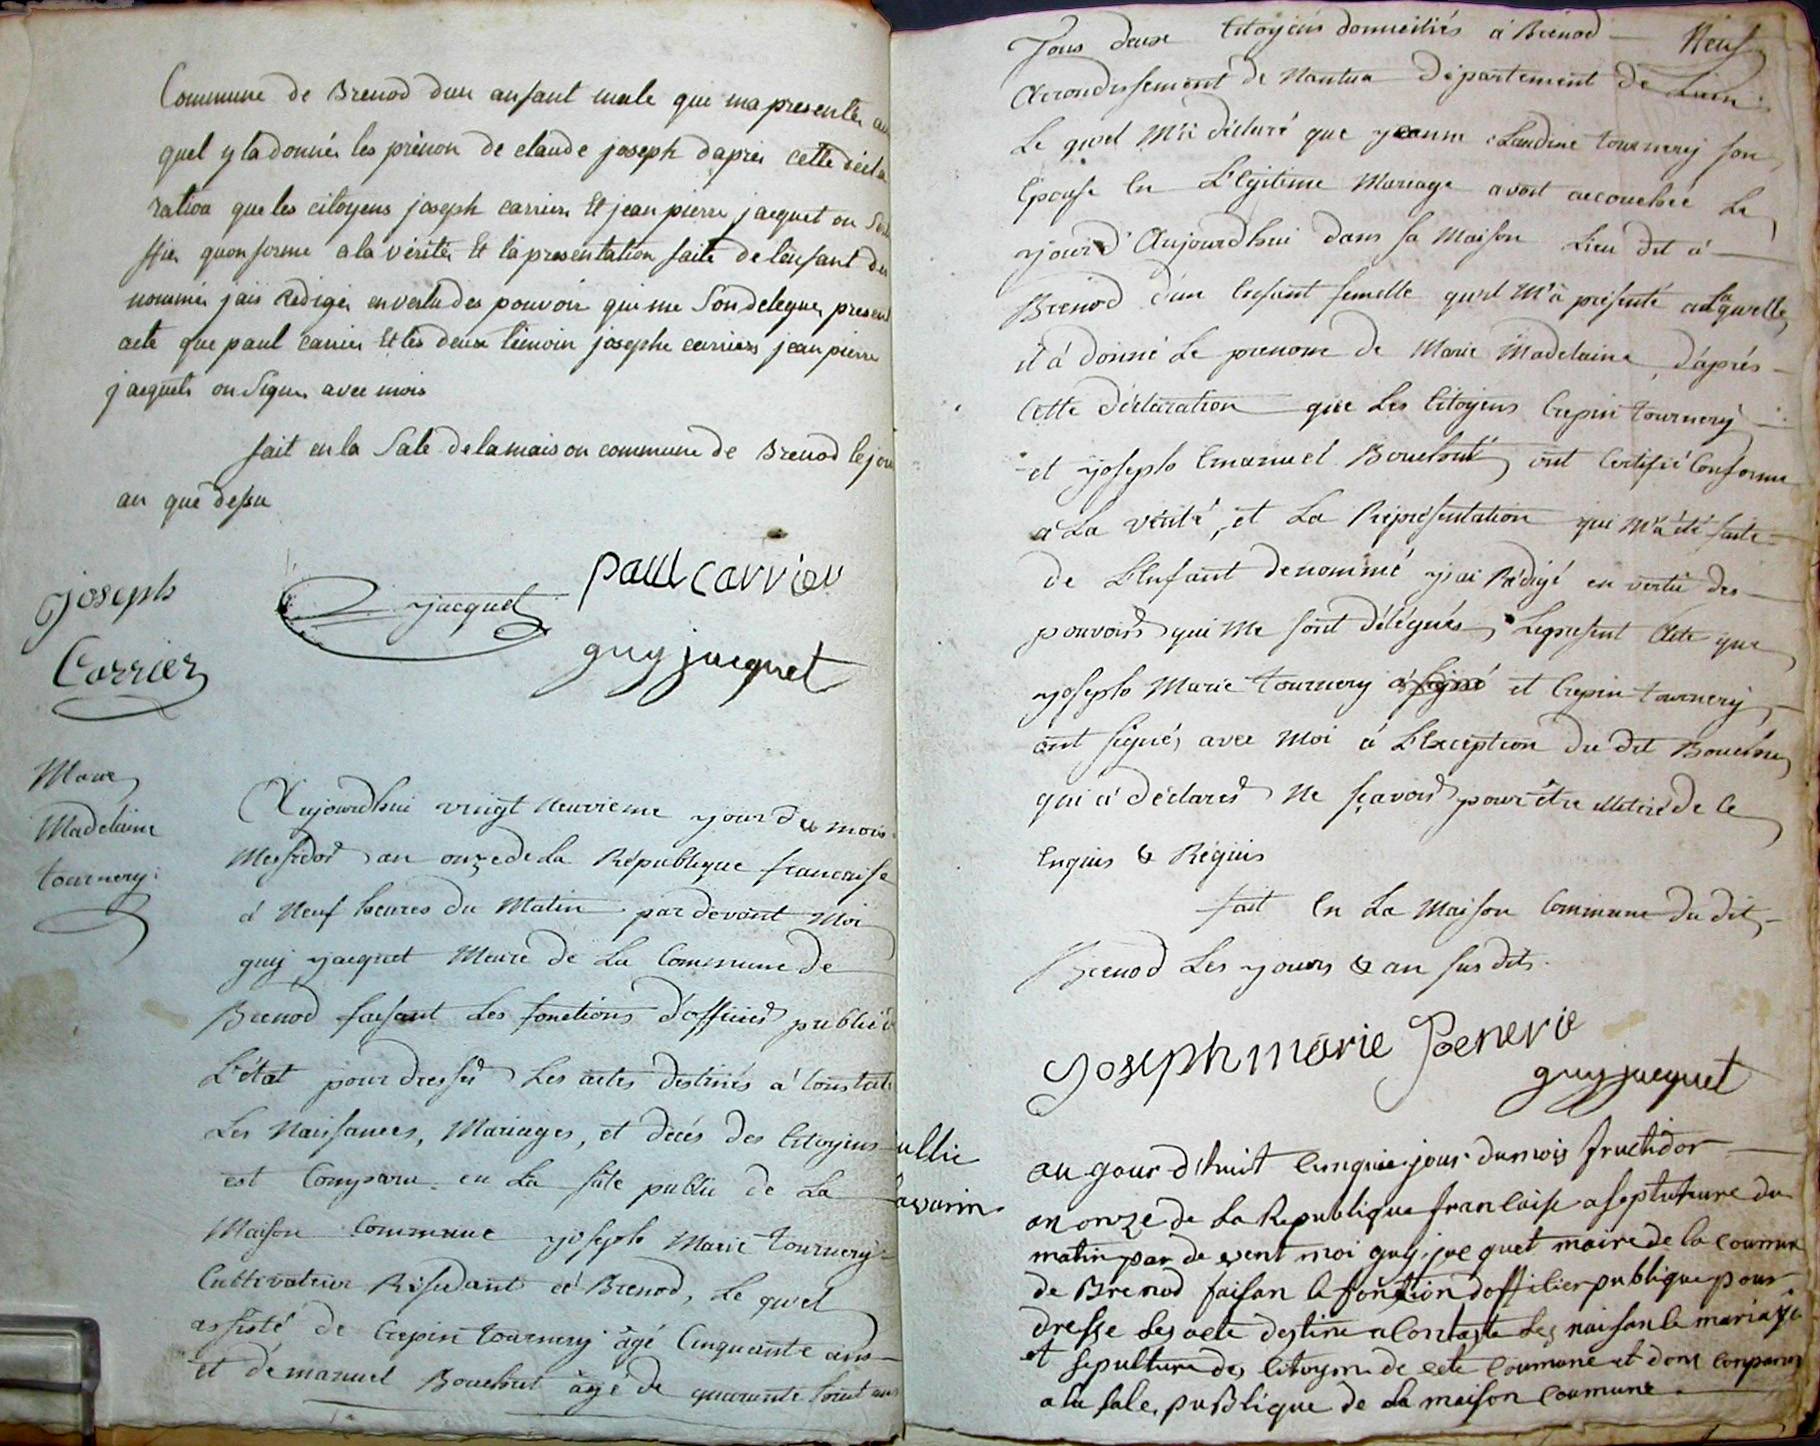 Commune de Brenod dun anfant male que ma presenter au
quel y la donner les prénon de claude joseph dapres cette décla
ration que les citoyens joseph carrier Et jean pierre jacquet on Serti
ffier quonforme a la vérité Et la presentation faite de lenfant de
nommer jais Rediger en vertu des pouvoir qui me Son deleguer presen
acte que paul carrier Et les deux témoin josephe carriers jean pierre
jacquets on Signer avec mois
fait en la Sale de la maison commune de Brenod le jour
an que dessu
joseph
Carrier
jacquet
paul carrier
guy jacquet
Marie
Madelaine
tournery
Aujourdhui vingt neuvieme jour du mois
Messidor an onze de La République francaise
à Neuf heures du Matin par devant Moi
guy jacquet Maire de La Commune de
Brenod faisant Les fonctions d'officier public
L'état pour dresser Les actes destinés à Constate
Les Naissances, Mariages, et decés des Citoyens
est Comparu en La sale public de La
Maison Commune joseph Marie tournery
Cultivateur Résidant à Brenod, Le quel
assisté de Crepin tournery âgé Cinquante ans
et démanuel Bouchut âgé de quarante huit ans
ublic
Tous deux Citoyens domiciliés à Brenod Neuf
Arrondissement de Nantua Département de Lain
Le quel M'à déclaré que jeanne Claudine tournery son
Epouse En Légitime Mariage avoit accouchée Le
jourd'Aujourdhui dans sa Maison Lieu dit à
Brenod d'un Enfant femelle qu'il M'à présenté a laquelle
il à donné Le prenome de Marie Madelaine, d'après
Cette déclaration que Les Citoyens Crepin tournery
et joseph Emanuel Bouchut ont Certifié Conforme
a La vérité, et La Répresentation qui M'à été faite
de L'Enfant denommé j'ai Rédigé en vertu des
pouvoirs qui Me sont délégués Le present Acte que
joseph Marie tournery à signé et Crepin tournery
ont signés avec Moi à L'Exception du dit Bouchut
qui à déclarer Ne sçavoir pour être illétré de ce
Enquis & Réquis
fait En La Maison Commune du dit
Brenod Les jours & an sus dits.
Joseph marie Toenerie
guy jacquet
au gour d'huit cinquie jour du mois fructidor
an onze de La Republique francaise a sept heure du
matin par de vent moi guy jacquet maire de la Commune
de Brenod faisan la fonction dofficier publique pour
dresse Les acte destine a Constate Les naisance mariage
et sepulture des Citoyen de cete Commune et dont Conparu
a la sale publique de La maison Commune